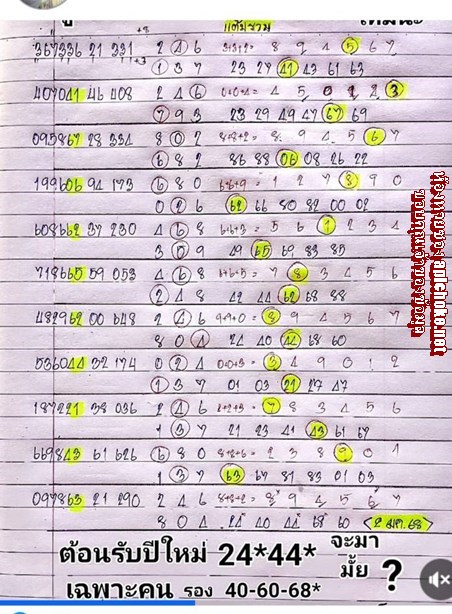 แต้มรวม
367336 21 331 2 4 6 3+3+2= 8 9 4 5 6 7
1 3 7 23 27 41 43 61 63
407041 46 408 2 4 6 0+0+4= 4 5 0 1 2 3
7 9 3 23 29 49 47 67 69
095867 28 334 8 0 2 8+8+2= 8 9 4 5 6 7
6 8 2 86 88 06 08 26 22
199606 94 173 6 8 0 6+6+9= 1 2 7 8 9 0
0 2 6 62 66 80 82 00 02
608662 37 230 4 6 8 6+6+3= 5 6 1 2 3 4
3 0 9 49 65 69 83 85
718665 59 053 4 6 8 1+6+5= 7 8 3 4 5 6
2 4 8 42 44 62 68 88
482962 00 648 2 4 6 9+9+0= 8 9 4 5 6 7
8 0 4 24 40 44 68 60
536044 32 174 0 2 4 0+0+3= 3 4 9 0 1 2
1 3 7 01 03 21 27 47
187221 38 036 2 4 6 2+2+3= 7 8 3 4 5 6
1 3 7 21 23 41 43 61 67
669843 61 626 6 8 0 8+2+6= 2 3 8 9 0 1
1 3 7 63 67 81 83 01 03
097863 21 290 2 4 6 8+8+2= 8 9 4 5 6 7
8 0 4 24 40 44 68 60 2 มค.68
ต้อนรับปีใหม่ 24*44* จะมา
มั้ย ?
เฉพาะคน รอง 40-60-68*